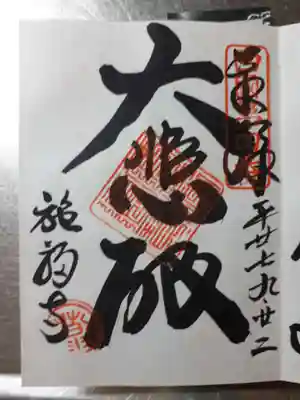 奉拝
平廿七九廿二
大悲殿
施福寺